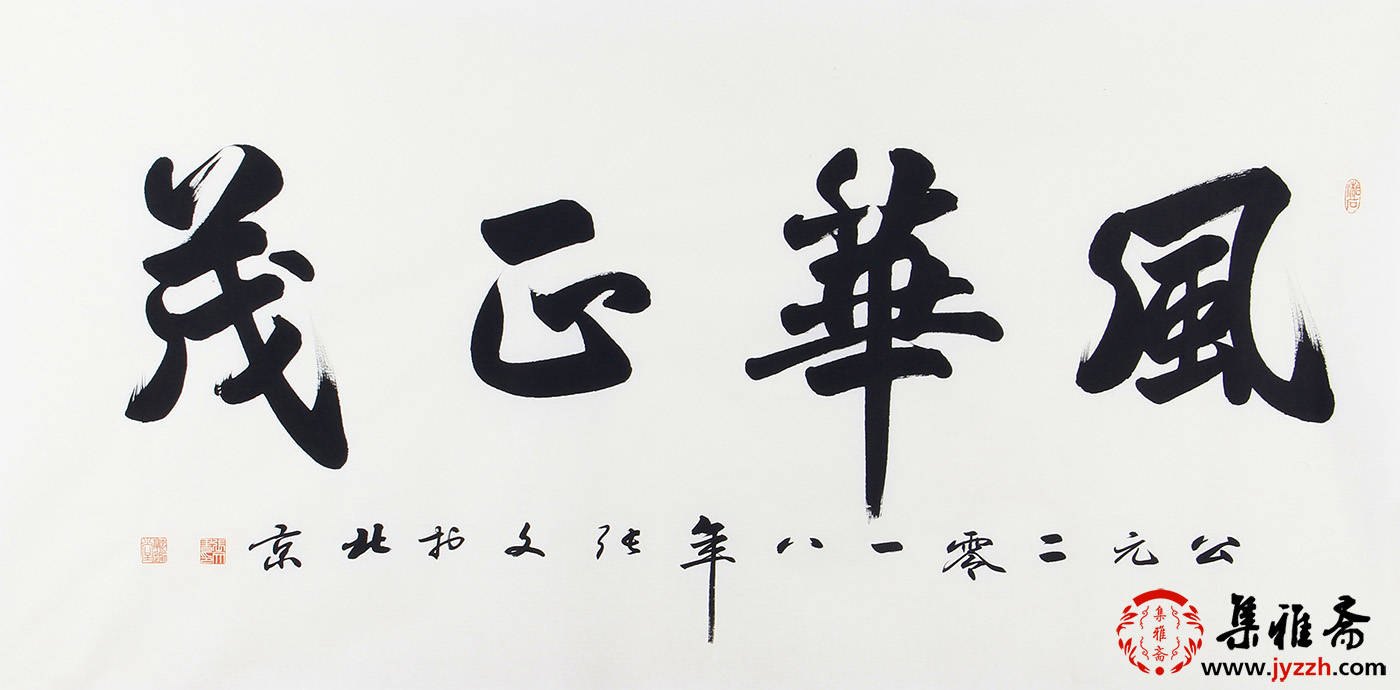 風華正茂
公元二零一八年张文於北京
集雅斋
集雅斋
www.jyzzh.com